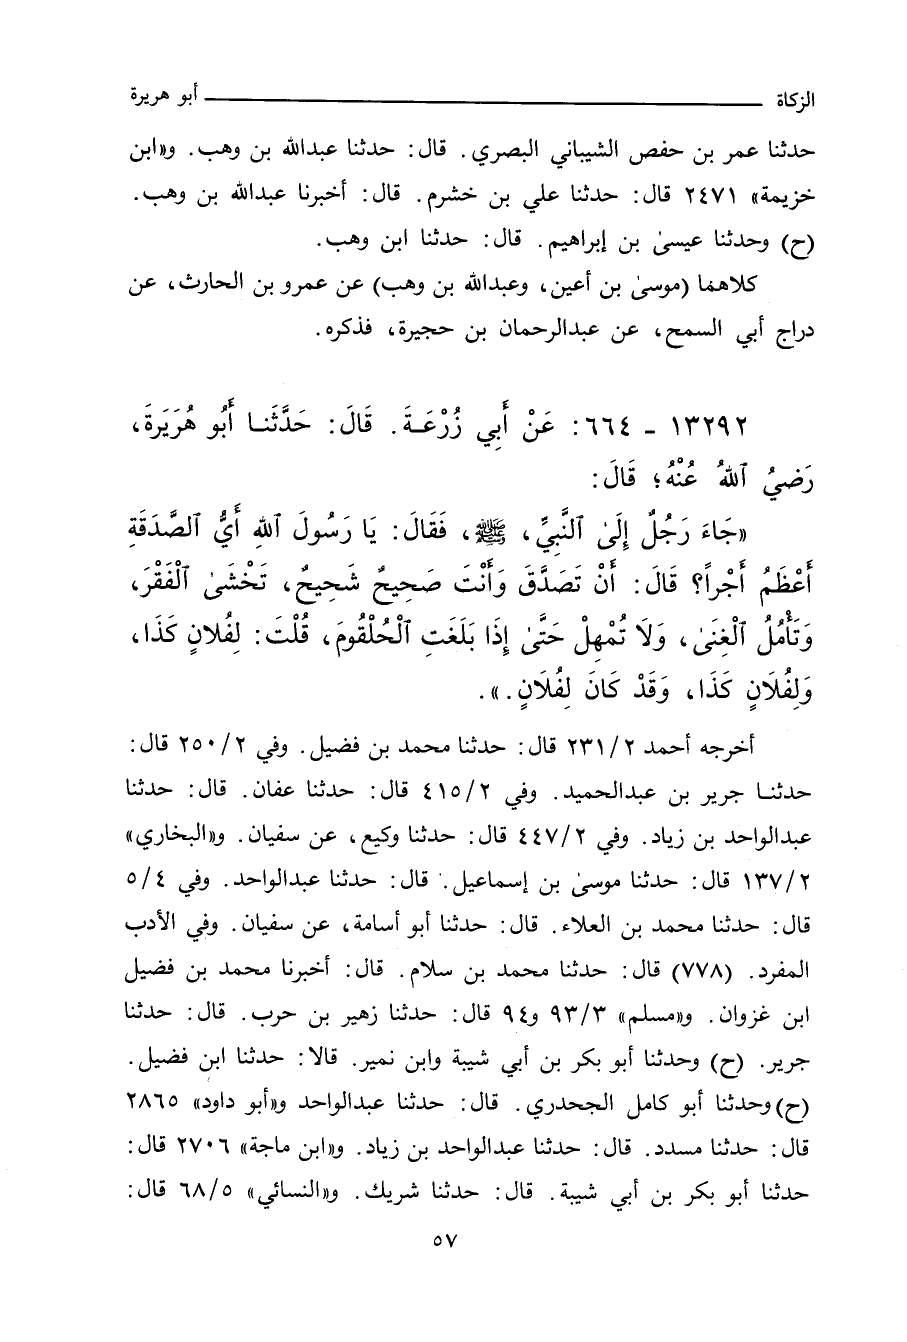 الزكاة ــــــــــ أبو هريرة
حدثنا عمر بن حفص الشيباني البصري. قال: حدثنا عبدالله بن وهب. و«ابن
خزيمة» ٢٤٧١ قال: حدثنا علي بن خشرم. قال: أخبرنا عبدالله بن وهب.
(ح) وحدثنا عيسىٰ بن إبراهيم. قال: حدثنا ابن وهب.
كلاهما (موسىٰ بن أعين، وعبدالله بن وهب) عن عمرو بن الحارث، عن
دراج أبي السمح، عن عبدالرحمان بن حجيرة، فذكره.
١٣٢٩٢ ـ ٦٦٤: عَنْ أَبِي زُرْعَةَ. قَالَ: حَدَّثَنَا أَبُو هُرَيَرَةَ،
رَضيُ ٱللهُ عُنْهُ؛ قَالَ:
«جَاءَ رَجُلٌ إِلَىٰ ٱلنَّبِيِّ، ﷺ، فَقَالَ: يَا رَسُولَ ٱللهِ أَيُّ ٱلصَّدَقَةِ
أَعْظَمُ أَجْراً؟ قَالَ: أَنْ تَصَدَّقَ وَأَنْتَ صَحِيحٌ شَحِيحٌ، تَخْشَىٰ ٱلْفَقْرَ،
وَتَأْمُلُ ٱلْغِنَىٰ، وَلَا تُمْهِلْ حَتَّىٰ إِذَا بَلَغَتِ ٱلْحُلْقُومَ، قُلْتَ: لِفُلَانٍ كَذَا،
وَلِفُلَانٍ كَذَا، وَقَدْ كَانَ لِفُلَانٍ.».
أخرجه أحمد ٢٣١/٢ قال: حدثنا محمد بن فضيل. وفي ٢٥٠/٢ قال:
حدثنا جرير بن عبدالحميد. وفي ٤١٥/٢ قال: حدثنا عفان. قال: حدثنا
عبدالواحد بن زياد. وفي ٤٤٧/٢ قال: حدثنا وكيع، عن سفيان. و«البخاري»
١٣٧/٢ قال: حدثنا موسىٰ بن إسماعيل. قال: حدثنا عبدالواحد. وفي ٥/٤
قال: حدثنا محمد بن العلاء. قال: حدثنا أبو أسامة، عن سفيان. وفي الأدب
المفرد. (٧٧٨) قال: حدثنا محمد بن سلام. قال: أخبرنا محمد بن فضيل
ابن غزوان. و«مسلم» ٩٣/٣ و٩٤ قال: حدثنا زهير بن حرب. قال: حدثنا
جرير. (ح) وحدثنا أبو بكر بن أبي شيبة وابن نمير. قالا: حدثنا ابن فضيل.
(ح) وحدثنا أبو كامل الجحدري. قال: حدثنا عبدالواحد و«أبو داود» ٢٨٦٥
قال: حدثنا مسدد. قال: حدثنا عبدالواحد بن زياد. و«ابن ماجة» ٢٧٠٦ قال:
حدثنا أبو بكر بن أبي شيبة. قال: حدثنا شريك. و«النسائي» ٦٨/٥ قال:
٥٧